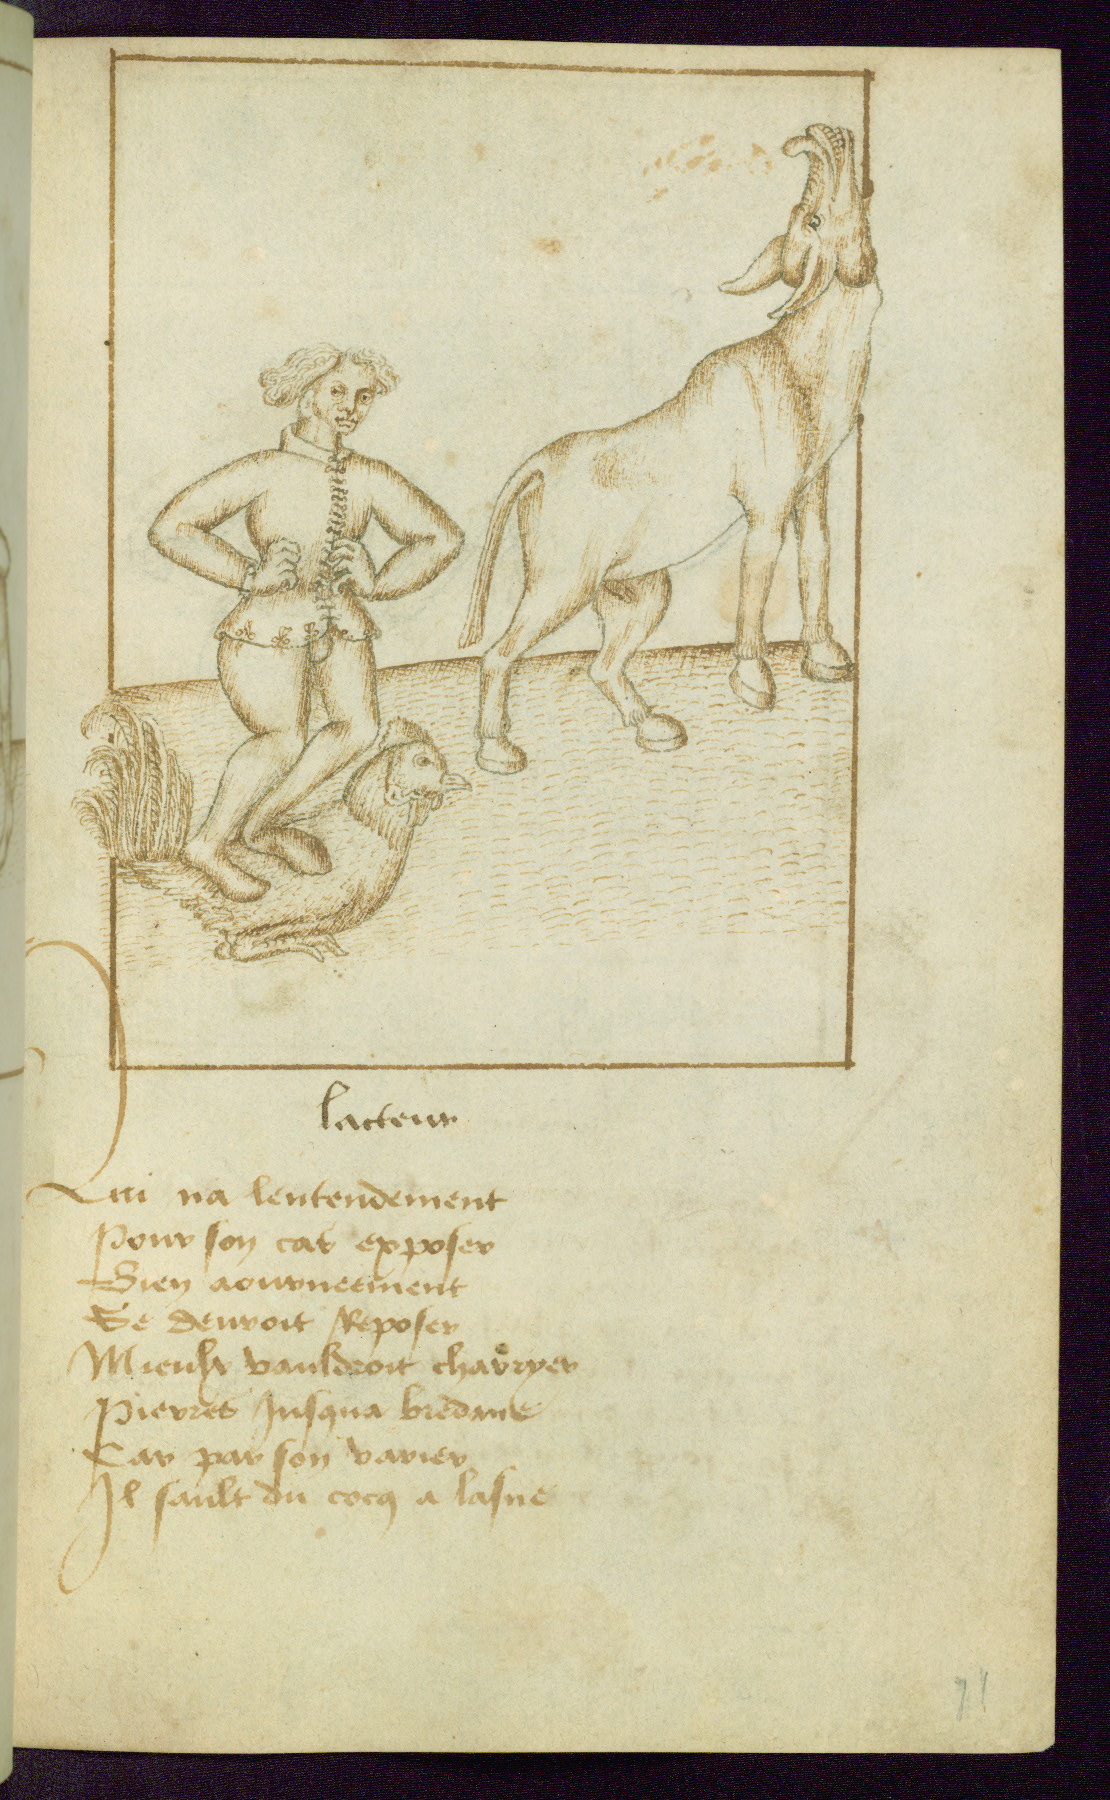 lacteur
Qui na lentendement
Pour son cas exposer
Bien aourneement
Se deuroit Reposer
Mieulx vauldroit charryer
Pierres Jusqua
Car par son varier
Il sault du cocq a lasne
71